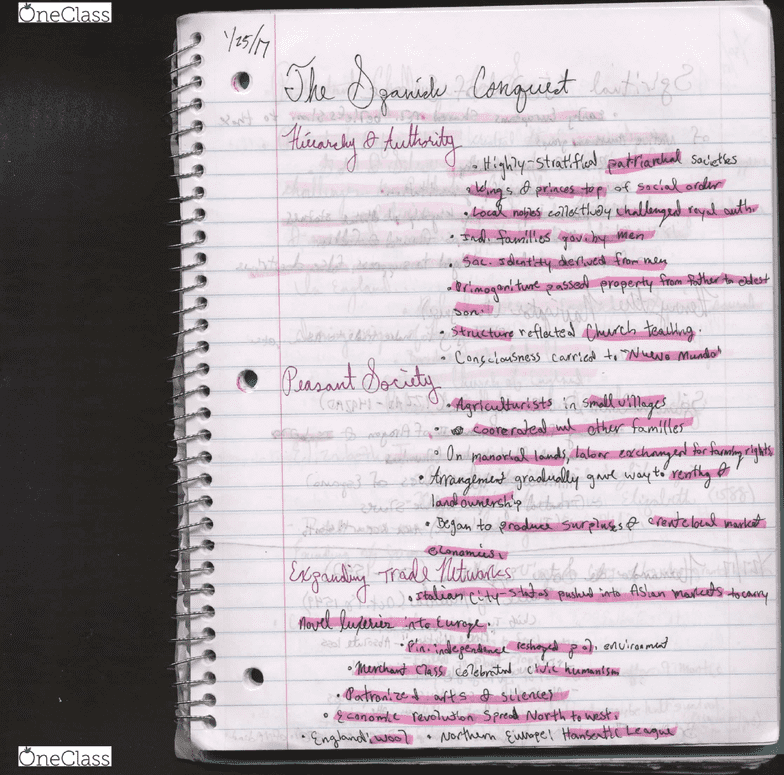 OneClass
1/25/17
The Spanish Conquest
Hierarchy & Authority
• Highly-stratified patriarchal societies
• Kings & princes top of social order
• Local nobles collectively challenged royal auth.
• Ind. families gov. by men
• Soc. identity derived from men
• Primogeniture passed property from father to eldest
son.
• Structure reflected Church teaching.
• Consciousness carried to "Nuevo Mundo"
Peasant Society
• Agriculturists in small villages
• cooperated w/ other families
• On manorial lands, labor exchanged for farming rights
• Arrangement gradually gave way to renting &
landownership
• Began to produce surpluses & create local market
economies.
Expanding Trade Networks
• Italian City-States pushed into Asian markets to carry
novel luxuries into Europe.
• Fin. independence reshaped pol. environment
• Merchant Class celebrated civic humanism
• Patronized arts & sciences
• Economic revolution spread North to west.
• England: wool • Northern Europe: Hanseatic League
OneClass